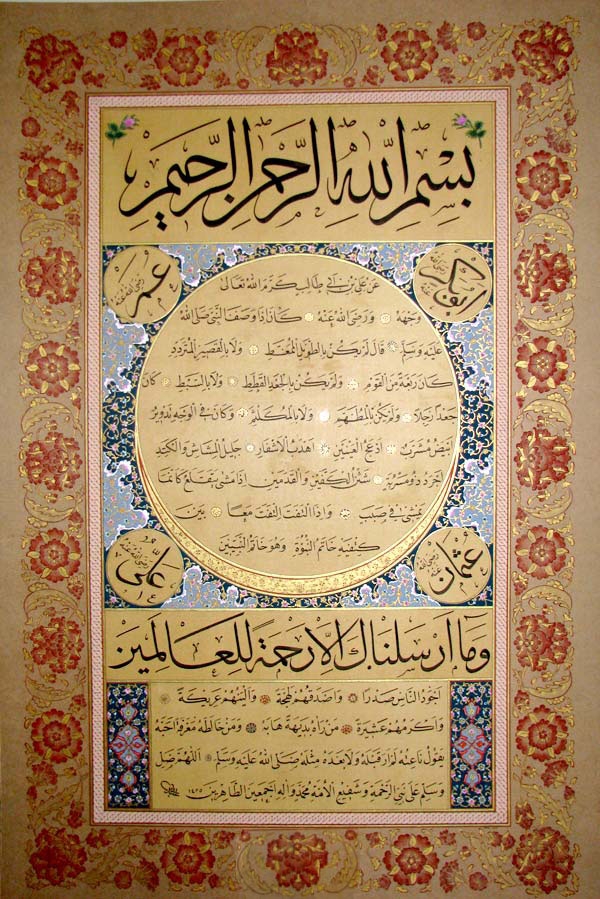 بِسْمِ اللهِ الرَّحْمٰنِ الرَّحِيمِ
ابو بكر رضي الله عنه
عمر رضي الله عنه
عن علي بن ابي طالب كرم الله تعالى
وجهه ورضي الله عنه كان اذا وصف النبي صلى الله
عليه وسلم قال لم يكن بالطويل الممغط ولا بالقصير المتردد
كان ربعة من القوم ولم يكن بالجعد القطط ولا بالسبط كان
جعدا رجلا ولم يكن بالمطهم ولا بالمكلثم وكان في الوجه تدوير
ابيض مشرب ادعج العينين اهدب الاشفار جليل المشاش والكتد
اجرد ذو مسربة شثن الكفين والقدمين اذا مشى يتقلع كانما
يمشي في صبب واذا التفت التفت معا بين
كتفيه خاتم النبوة وهو خاتم النبيين
عثمان رضي الله عنه
علي رضي الله عنه
وما ارسلناك الا رحمة للعالمين
اجود الناس صدرا واصدقهم لهجة والينهم عريكة
واكرمهم عشيرة من رآه بديهة هابه ومن خالطه معرفة احبه
يقول ناعته لم ار قبله ولا بعده مثله صلى الله عليه وسلم اللهم صل
وسلم على نبي الرحمة وشفيع الامة محمد وآله اجمعين الطاهرين ١٤٢٥